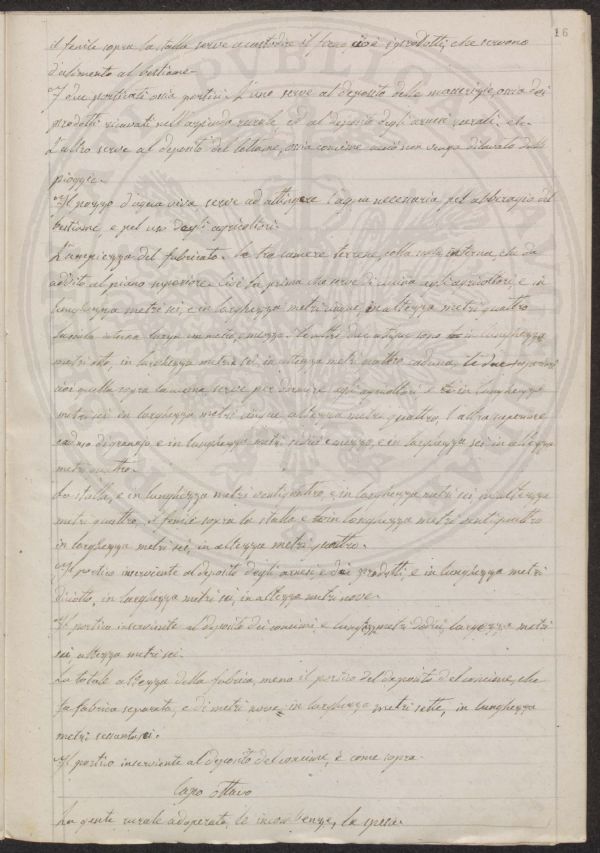 16
il fenile sopra la stalla serve a custodire il fieno, cioè i prodotti, che servono
d'alimento al bestiame.
I due porticati ossia portici. L'uno serve al deposito delle macerizie, ossia dei
prodotti ricavati nell'azienda rurale, ed al deposito degli arnesi rurali. etc.
L'altro serve al deposito del lettame, ossia concime acciò non venga dilavato dalle
pioggie.
Il pozzo d'acqua viva serve ad attingere l'acqua necessaria pel abberagio del
bestiame, e pel uso degli agricoltori.
L'ampiezza del fabricato. Le tre camere terrene, colla scala interna, che da
addito al piano superiore. Cioè la prima che serve di cucina agli agricoltori, è in
lunghezza metri sei, e in larghezza metri cinque, in altezza metri quattro
la scala interna larga un metro, e mezzo. Le altre due attigue sono in lunghezza
metri otto, in larghezza metri sei, in altezza metri quattro caduna. Le due superiori
cioè quella sopra la cucina serve per dormire agli agricoltori è in lunghezza
metri sei in larghezza metri cinque altezza metri quattro, l'altra superiore
ad uso di granajo, è in lunghezza metri sedici e mezzo, e in larghezza sei in altezza
metri quattro.
La stalla, è in lunghezza metri ventiquattro, e in larghezza metri sei in altezza
metri quattro, il fenile sopra la stalla è in lunghezza metri ventiquattro
in larghezza metri sei, in altezza metri quattro.
Il portico inserviente al deposito degli arnesi e dei prodotti, è in lunghezza metri
diciotto, in larghezza metri sei, in altezza metri nove.
Il portico inserviente al deposito dei concimi, è lunghezza metri dodici, larghezza metri
sei, altezza metri sei.
La totale altezza della fabrica, meno il portico del deposito del concime, che
fa fabrica separata, è di metri nove, in larghezza metri sette, in lunghezza
metri sessantasei.
Il portico inserviente al deposito del concime, è come sopra.
Capo ottavo
La gente rurale adoperata, le incombenze, la spesa.